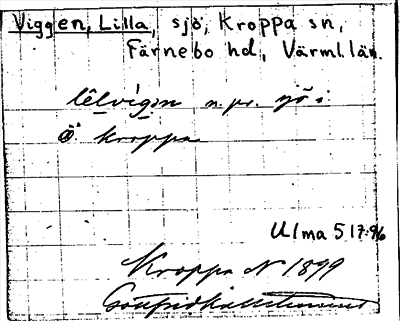 Viggen, Lilla, sjö, Kroppa sn,
Färnebo hd., Värml. län.
lêlvigən n. pr. sjö i
Ö. Kroppa
Ulma 517:96
Kroppa N 1899
Gottfrid Kallstenius